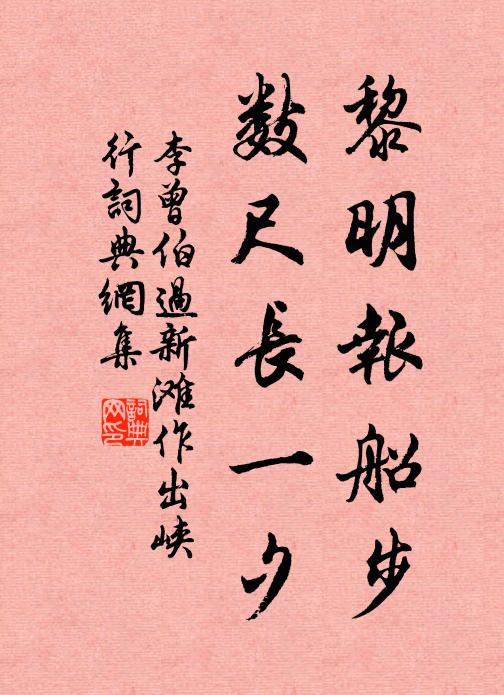 黎明報船步
數尺長一夕
李曾伯過新滩作出峡
行詞典網集
詞典
网印